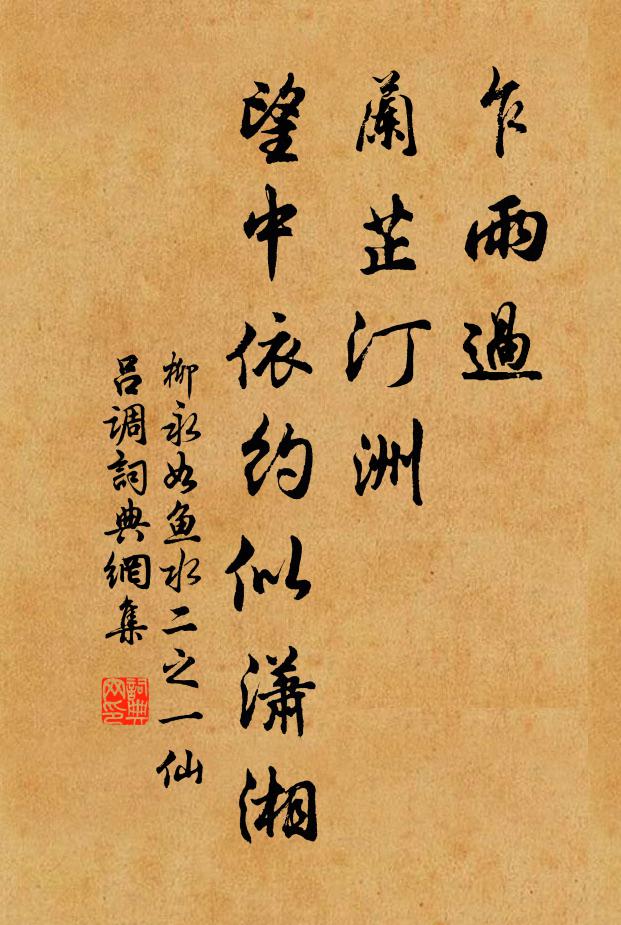 乍雨過
蘭芷汀洲
望中依約似瀟湘
柳永如魚水二之一仙
呂調詞典網集
詞典
网印